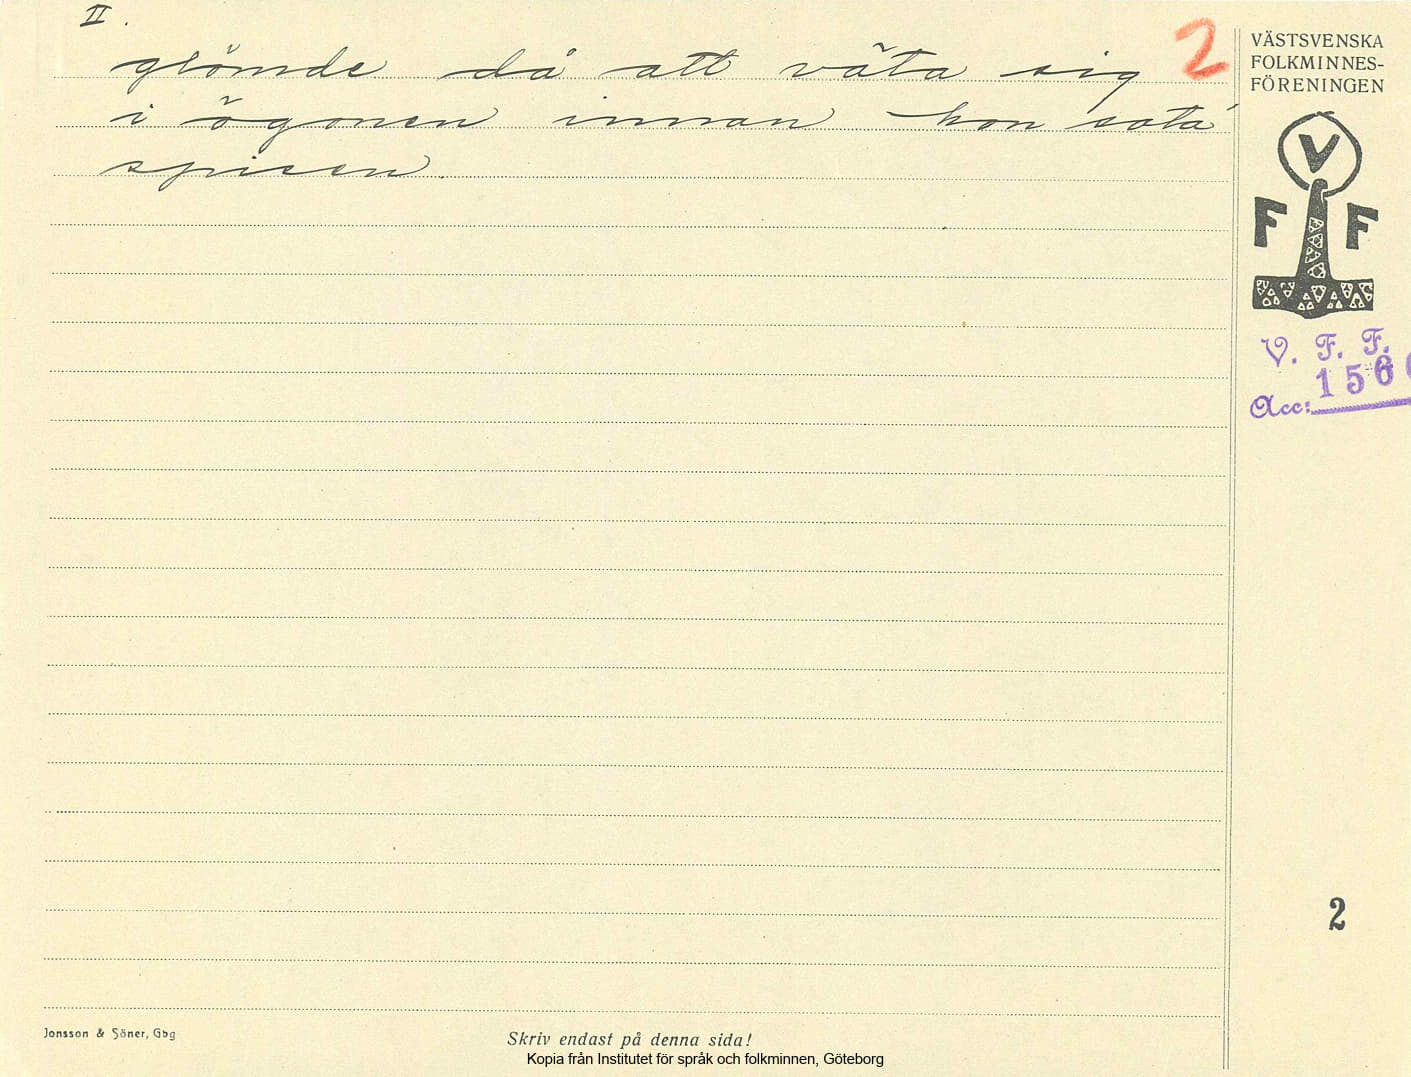 II.
glömde då att väta sig
i ögonen innan hon sota'
spisen.
2
VÄSTSVENSKA
FOLKMINNES-
FÖRENINGEN
V
F F
V. F. F.
Acc: 156
2
Jonsson & Söner, Gbg
Skriv endast på denna sida!
Kopia från Institutet för språk och folkminnen, Göteborg